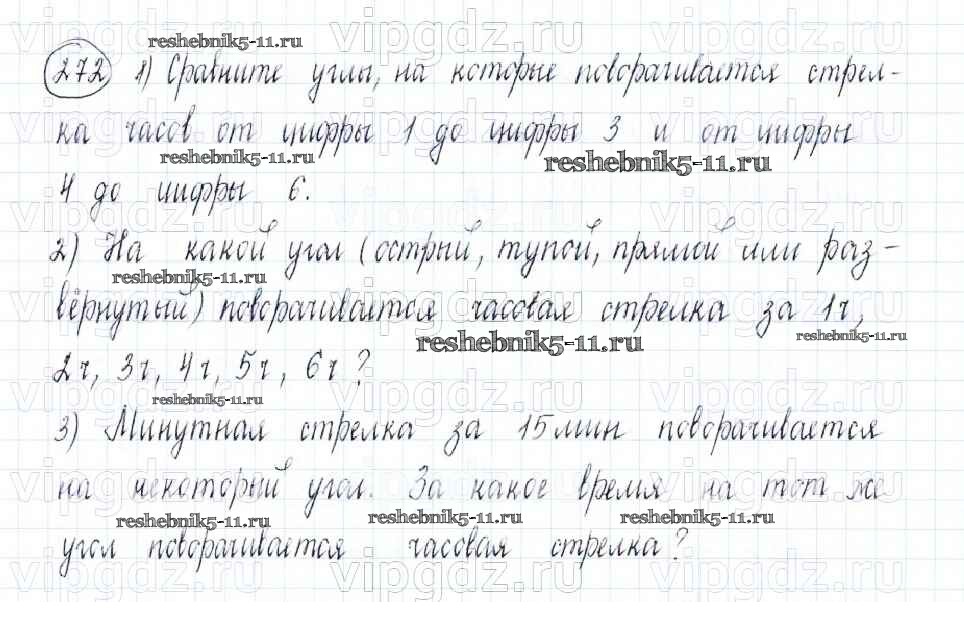 vipgdz.ru vipgdz.ru vipgdz.ru vipgdz.ru
reshebnik5-11.ru
272 1) Сравните углы, на которые поворачивается стрел-
ка часов от цифры 1 до цифры 3 и от цифры
reshebnik5-11.ru reshebnik5-11.ru
4 до цифры 6.
2) На какой угол (острый, тупой, прямой или раз-
reshebnik5-11.ru
вёрнутый) поворачивается часовая стрелка за 1ч,
reshebnik5-11.ru reshebnik5-11.ru
2ч, 3ч, 4ч, 5ч, 6ч?
reshebnik5-11.ru
3) Минутная стрелка за 15мин поворачивается
на некоторый угол. За какое время на тот же
reshebnik5-11.ru reshebnik5-11.ru reshebnik5-11.ru
угол поворачивается часовая стрелка?
vipgdz.ru vipgdz.ru vipgdz.ru vipgdz.ru